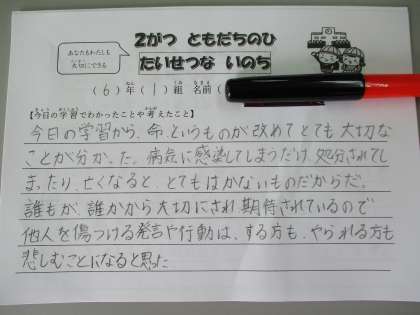 あなたもわたしも
大切にできる
2がつ ともだちのひ
たいせつな いのち
(6)年(1)組 名前(
【今日の学習でわかったことや考えたこと】
今日の学習から、命というものが改めてとても大切な
ことが分かった。病気に感染してしまうだけ、処分されてし
まったり、亡くなると、とてもはかないものだからだ。
誰もが、誰かから大切にされ期待されているので
他人を傷つける発言や行動は、する方も、やられる方も
悲しむことになると思った